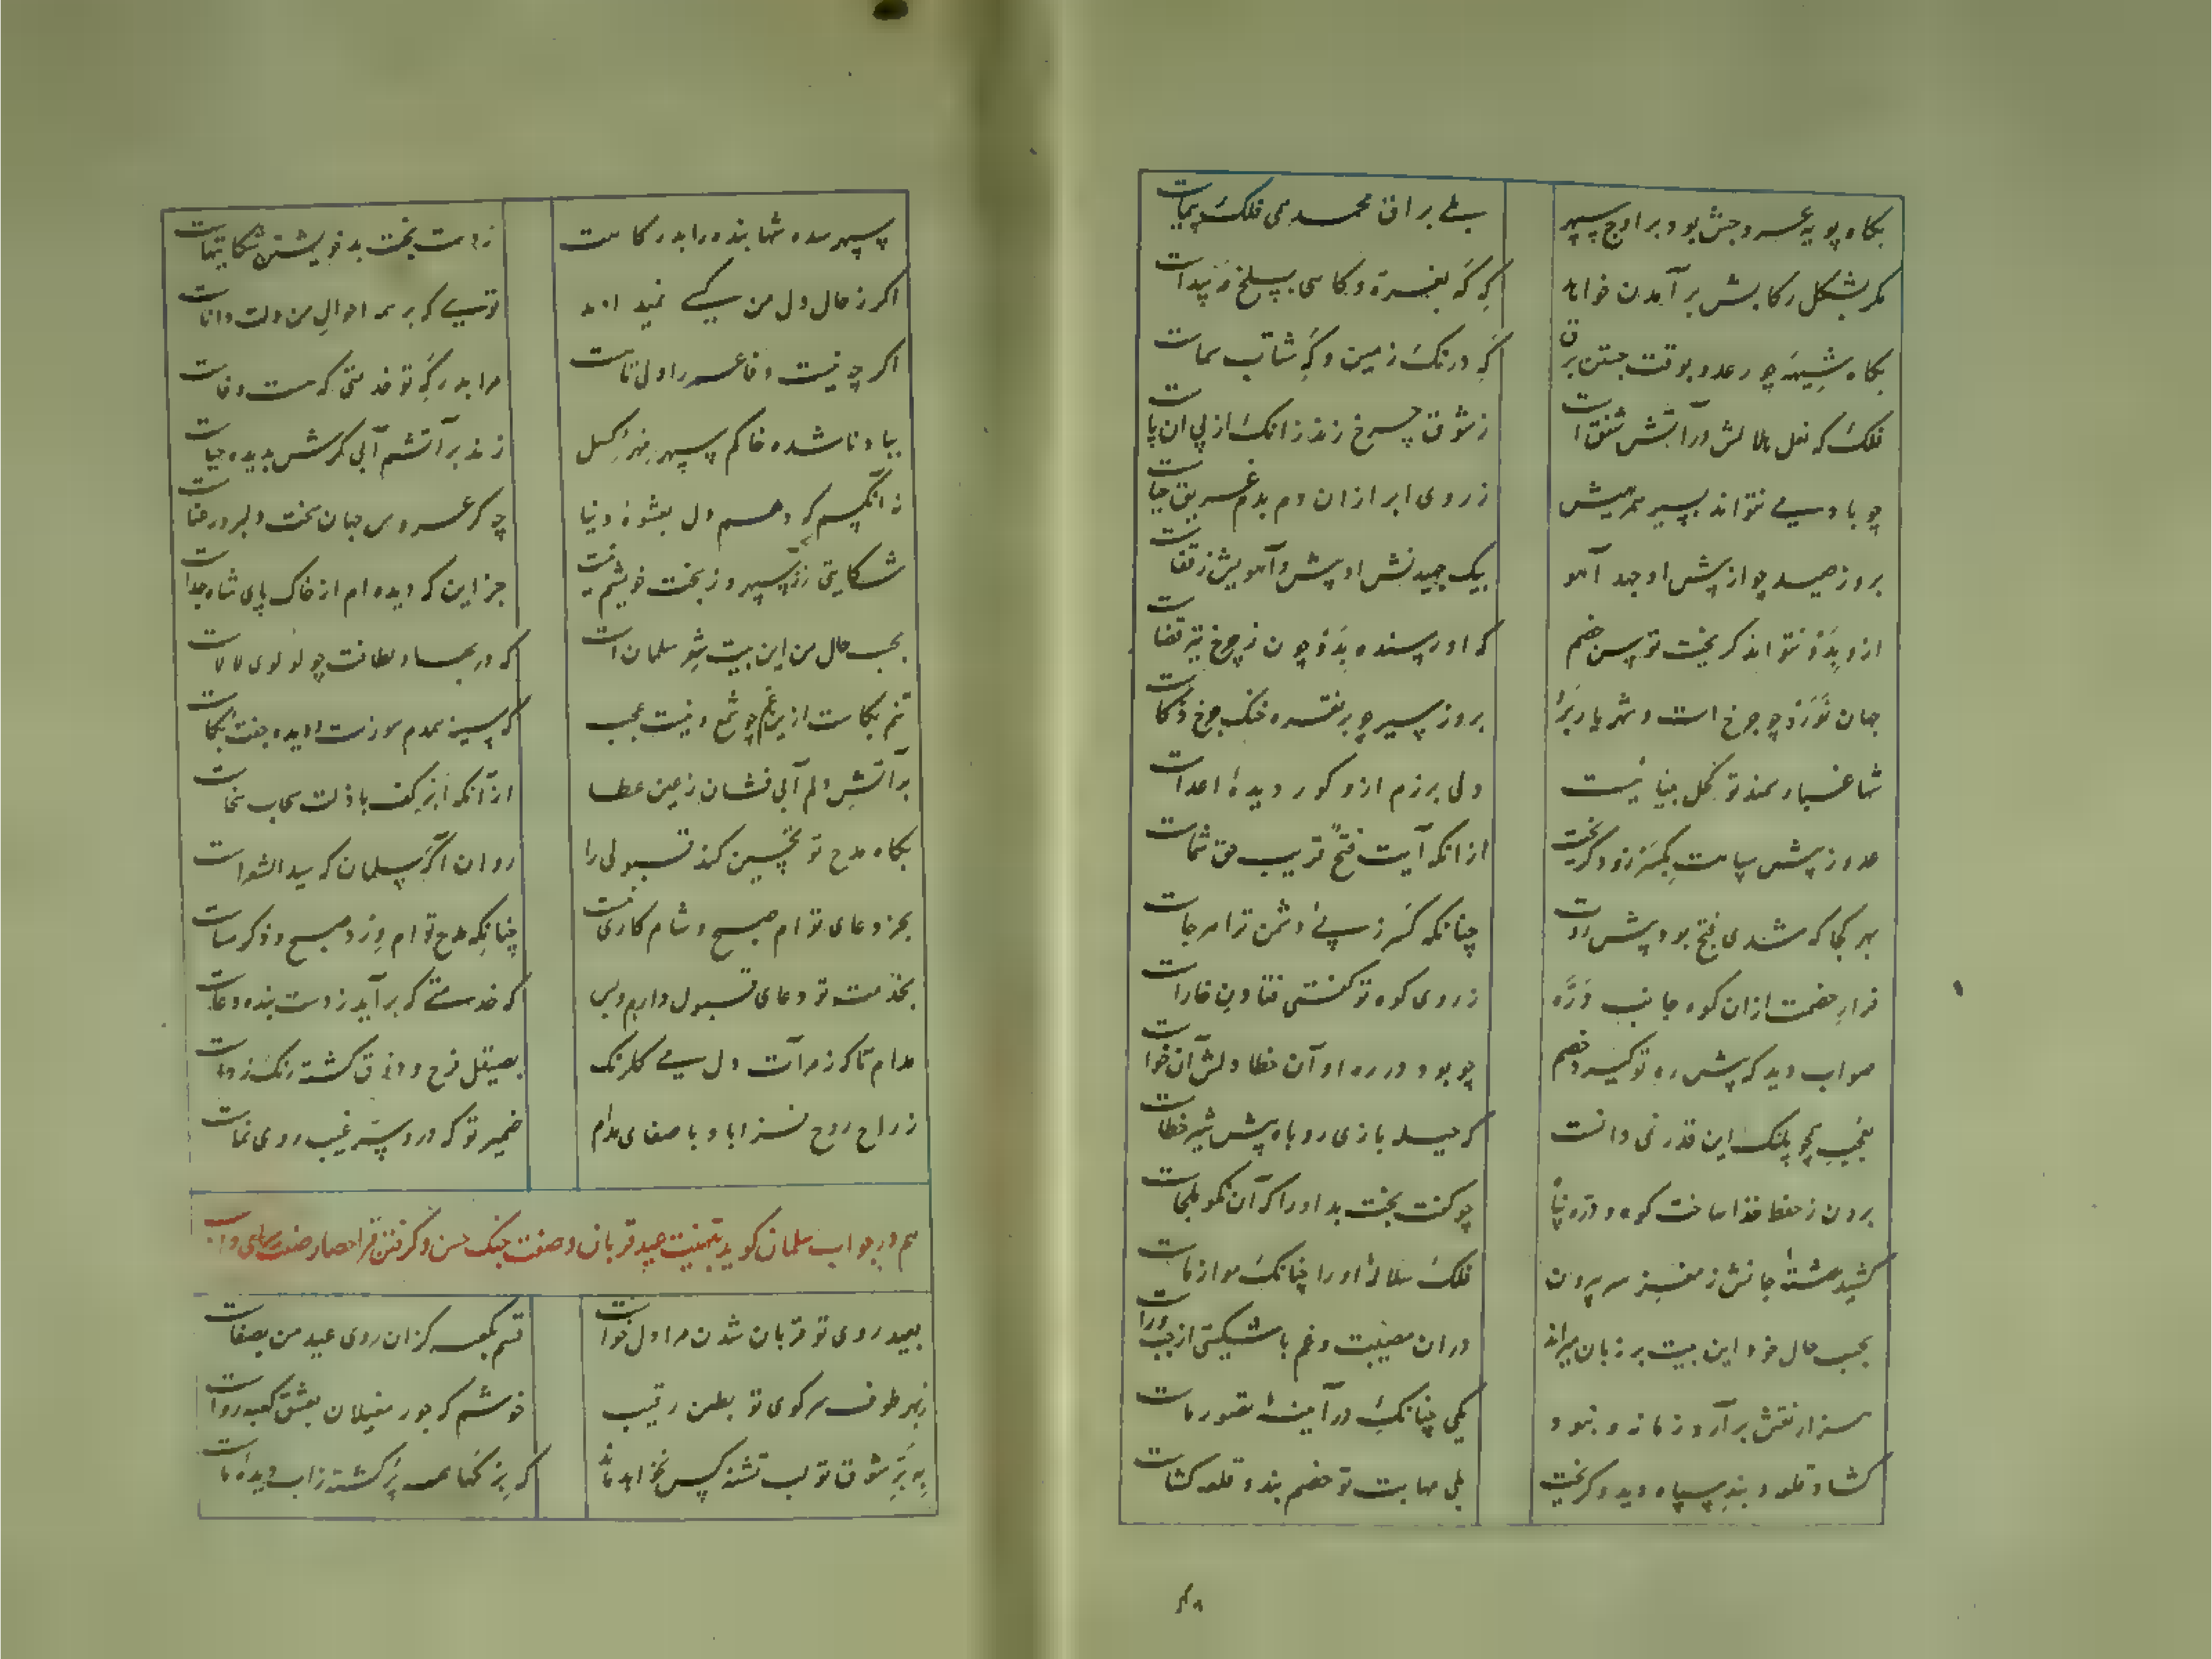 بکاه پویه عروجش بود بر اوج سپهر بلی براق محمد می فلک پیماست
مکر بشکل رکابش برآمدن خواهد که که بغره و کاهی بسلخ مه پیداست
بکاه شیهه چو رعد و بوقت جستن برق که درنک زمین و که شتاب سماست
فلک که نعل هلالش در آتش شفق است ز شوق چرخ زند زانک از پی آن پاست
چو باد می نتواند بسیر همرهیش ز روی ابر ازان دم بدم غریق حیاست
بروز صید چو از پیش او جهد آهو بیک جهیدنش او پیش و آهویش ز قفاست
ازو بدو نتواند کریخت تو سن خصم که او رسنده بدو چون ز چرخ تیر قضاست
جهان نورد چو چرخ است و شهریار برو بروز سیر چو بر نقره خنک چرخ ذکاست
شها غبار سمند تو کحل بینائیست ولی برزم ازو کور دیدهٔ اعداست
عدو ز پیش سپاهت بکسر زود کریخت ازانکه آیت فتح قریب حق شماست
بهر کجا که شدی فتح بود پیش روت چنانکه کسر ز پی دشمن ترا هر جاست
فرار خصمت ازان کوه جانب دره ز روی کوه تو کفتی فتادن خاراست
صواب دید که پیش ره تو کیرد خصم چو بود در ره او آن خطا دلش آن خواست
بعجب همچو پلنک این قدر نمی دانست که حیله بازی روباه پیش شیر خطاست
برون ز حفظ خدا ساخت کوه و دره پناه چو کفت بخت بد او را که آن نکو ملجاست
کشید رشتهٔ جانش ز مغز سر بیرون فلک سلالهٔ او را چنانک مو از ماست
بحسب حال خود این بیت بر زبان میراند دران مصیبت و غم با شکستی از چپ و راست
هزار نقش برآرد زمانه و نبود یکی چنانک در آینهٔ تصور ماست
کشاد قلعه و بند سپاه دید و کریخت بلی مهابت تو خصم بند و قلعه کشاست
سپهر سده شها بنده را بدرکاهت ز دست بخت بد خویشتن شکایتهاست
اکر ز حال دل من کسی نمی‌داند توئی که بر همه احوال من دلت داناست
اکر چه نیست وفا عمر را ولی تا هست مرا بدرکه تو خدمتی که هست وفاست
بباد ناشده خاکم سپهر مهر کسل زند بر آتشم آبی کرش بدیده حیاست
نه آنکسم که دهم دل بعشوهٔ دنیا چو کر عروس جهان سخت دلبر رعناست
شکایتی ز سپهر و ز بخت خویشم نیست جز این که دیده‌ام از خاک پای شاه جداست
بحسب حال من این بیت شعر سلمان است که در بها و لطافت چو لولوی لالاست
تنم بکاست ازین غم چو شمع و نیست عجب که سینه همدم سوزست و دیده جفت بکاست
بر آتش دلم آبی نشان ز عین عطا ازآنکه ابر کف باذلت سحاب سخاست
بکاه مدح تو تحسین کند قبولی را روان اکر سلمان که سید الشعراست
بجز دعای تو ام صبح و شام کاری نیست چنانکه مدح تو ام ورد صبح و ذکر مساست
بخدمت تو دعای قبول دارم و بس که خدمتی که برآید ز دست بنده دعاست
مدام تا که ز مرآت دل می کلرنک بصیقل فرح و ذوق کشته زنک زداست
ز راح روح فزا باد با صفای مدام ضمیر تو که درو سر غیب روی نماست
هم در جواب سلمان کوید بتهنیت عید قربان و صفت جنک حسن و کرفتن قرا حصار
بعید روی تو قربان شدن مرا دل خواست قسم بکعبه کزان روی عید من بصفاست
ز بهر طوف سر کوی تو بطعن رقیب خوشم که جور مغیلان بعشق کعبه رواست
به بر شوق تو لب تشنه کس نخواهد ماند که برکها همه پر کشته ز آب دیدهٔ ماست
۴۸